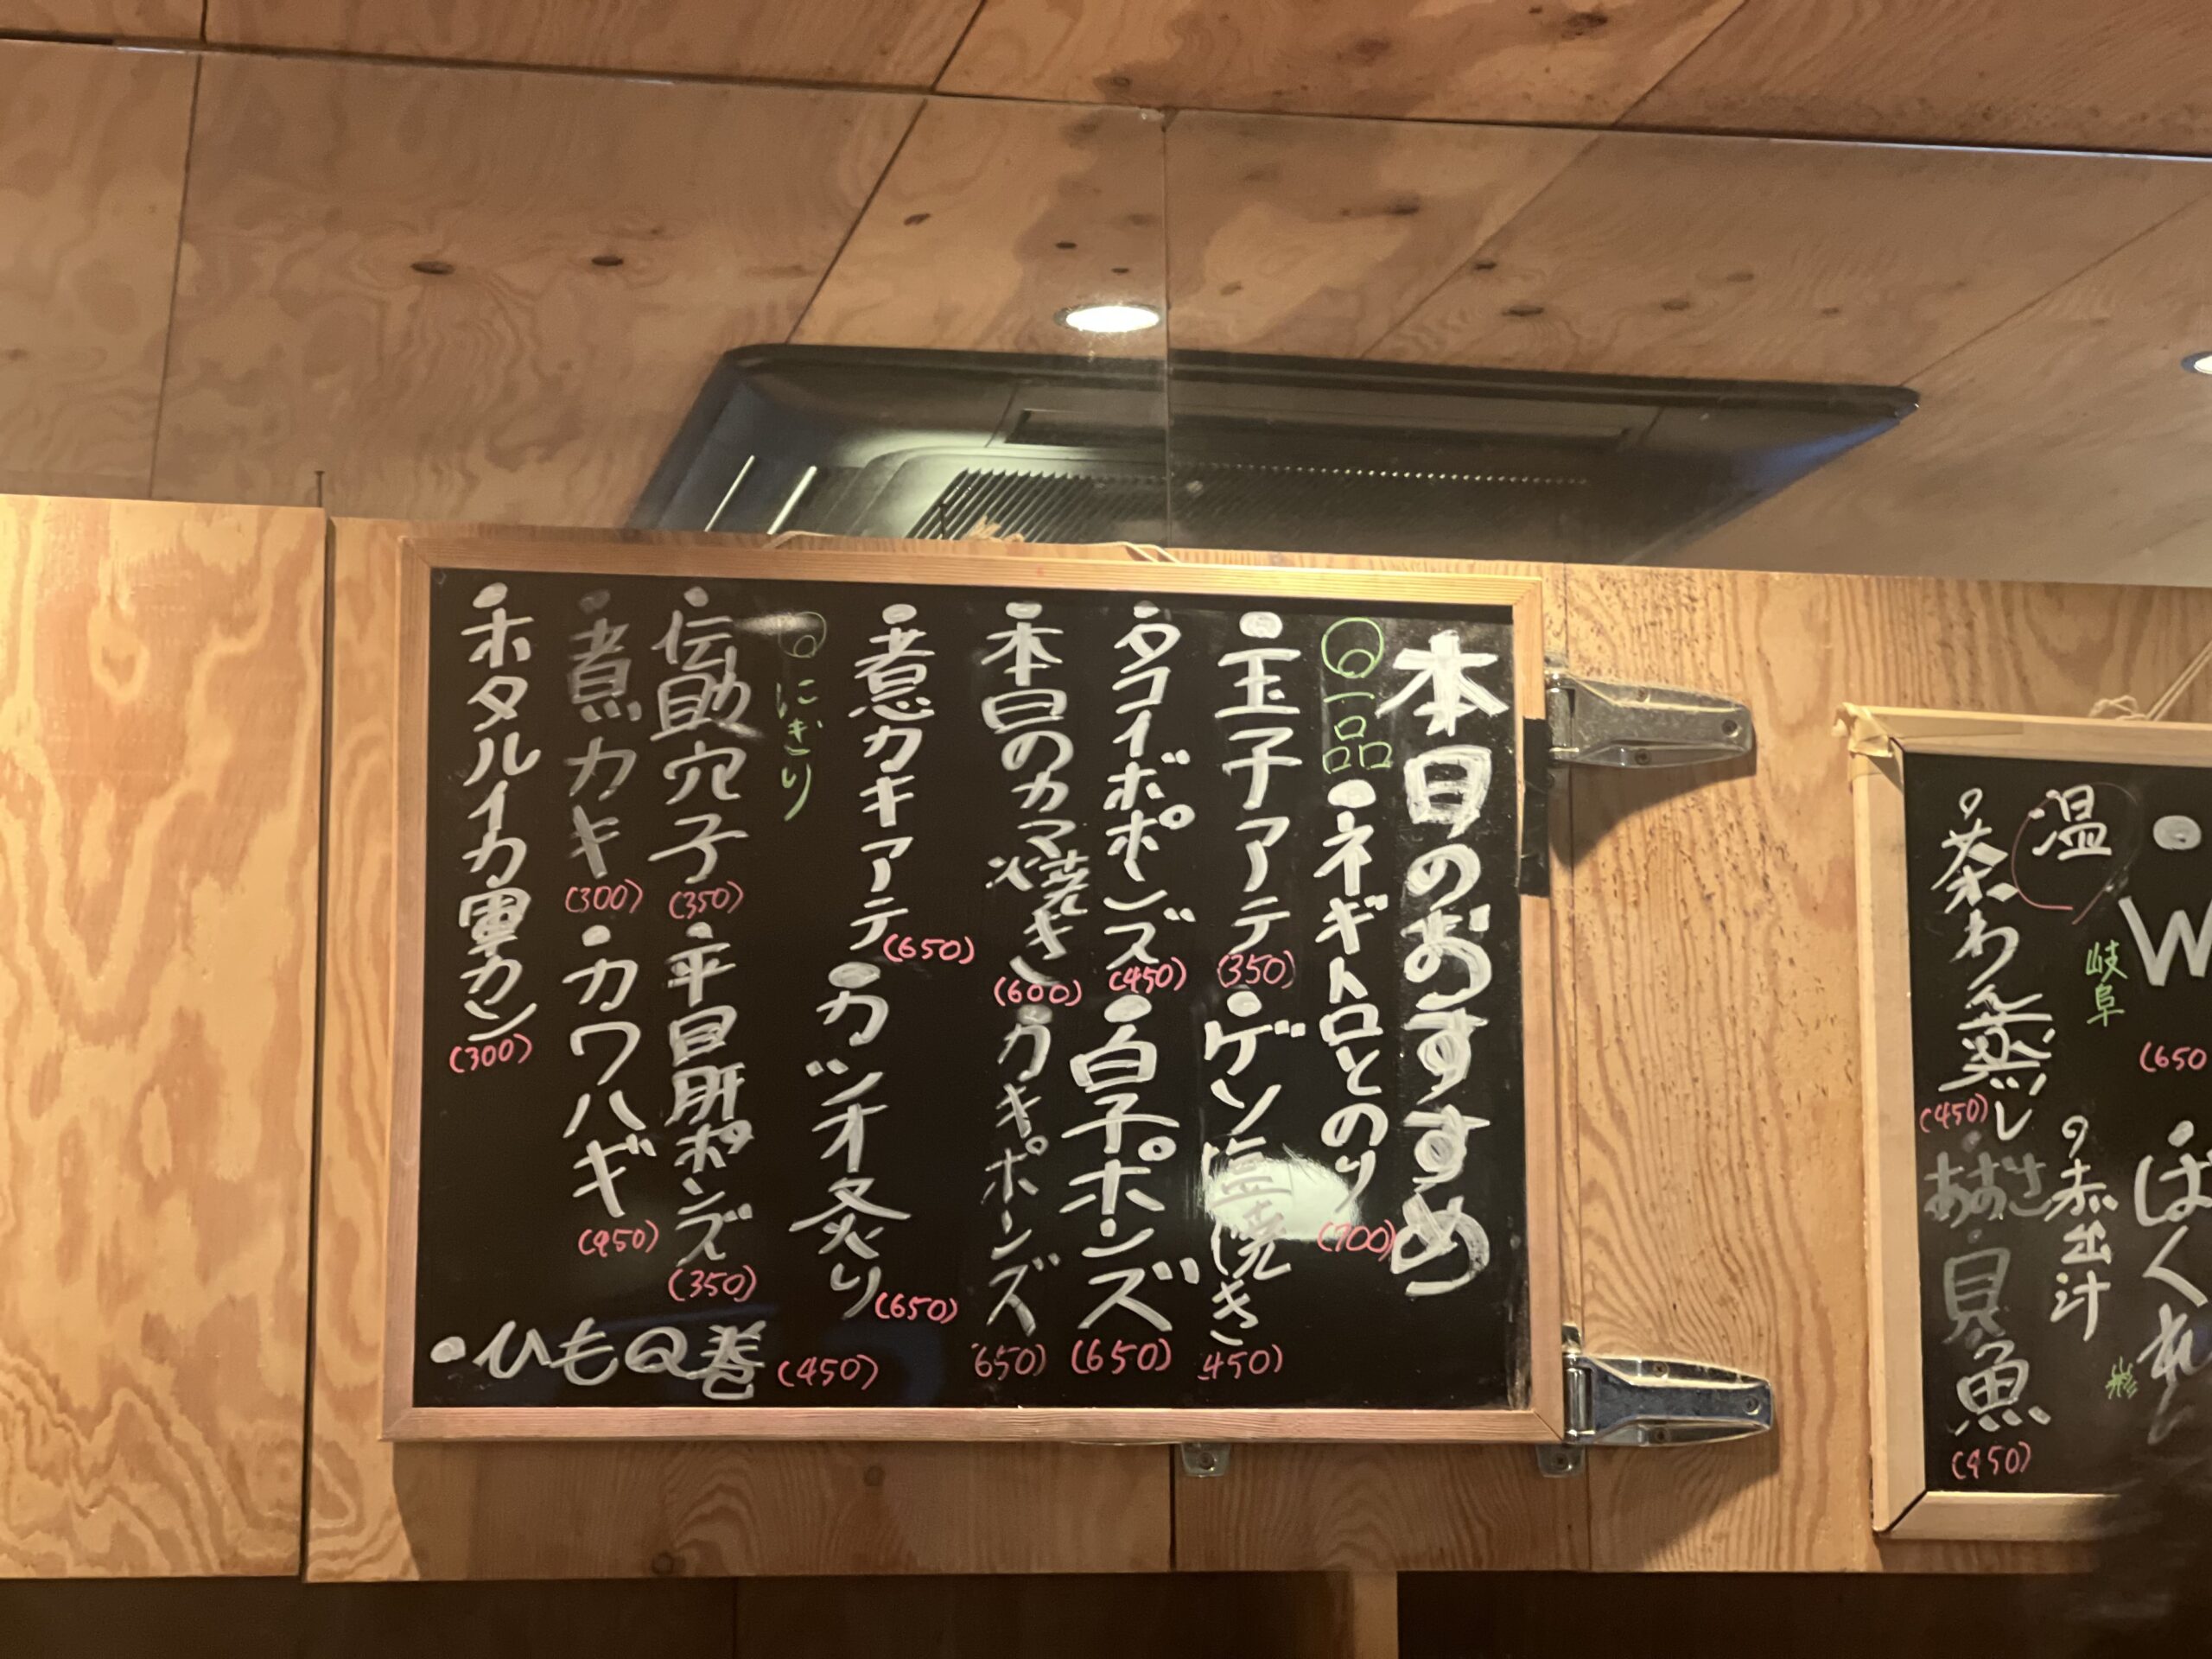 本日のおすすめ
◎一品
・ネギトロとのり(700)
・玉子アテ(350)
・ゲソ塩焼き(450)
・タコイボポンズ(450)
・白子ポンズ(650)
・本日のカマ焼き(600)
・カキポンズ(650)
・煮カキアテ(650)
・カツオ炙り(650)
◎にぎり
・伝助穴子(350)
・平目肝ポンズ(350)
・煮カキ(300)
・カワハギ(950)
・ホタルイカ軍カン(300)
・ひもQ巻(450)
・W
岐阜
(650
・ぼくれ
温
・茶わん蒸し(450)
・赤出汁
あおさ
貝
魚
(950)